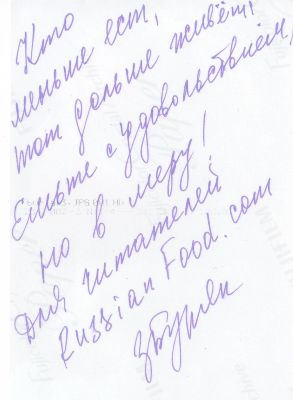 Кто
меньше ест,
тот дольше живёт!
Ешьте с удовольствием,
но в меру!
Для читателей
Russian Food.com